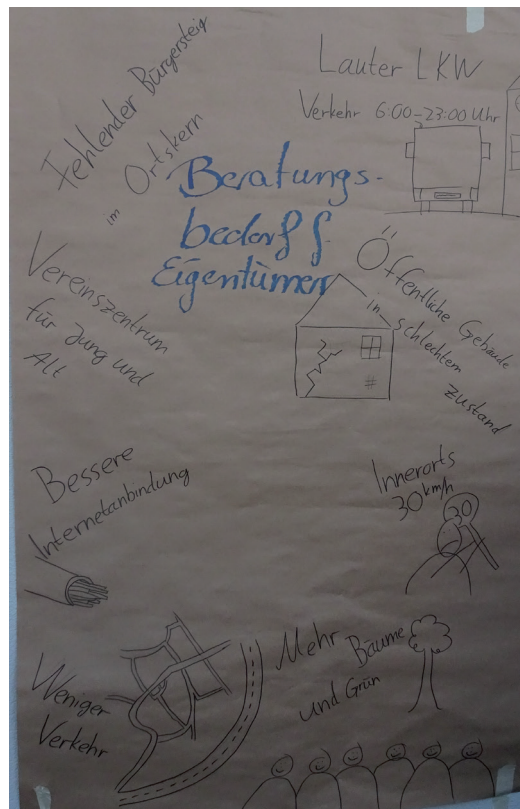 Fehlender Bürgersteig
im Ortskern
Lauter LKW
Verkehr 6:00-23:00 Uhr
Beratungs-
bedarf f.
Eigentümer
Vereinszentrum
für Jung und
Alt
Öffentliche Gebäude
in schlechtem
zustand
Bessere
Internetanbindung
Innerorts
30 km/h
30
Weniger
Verkehr
Mehr Bäume
und Grün